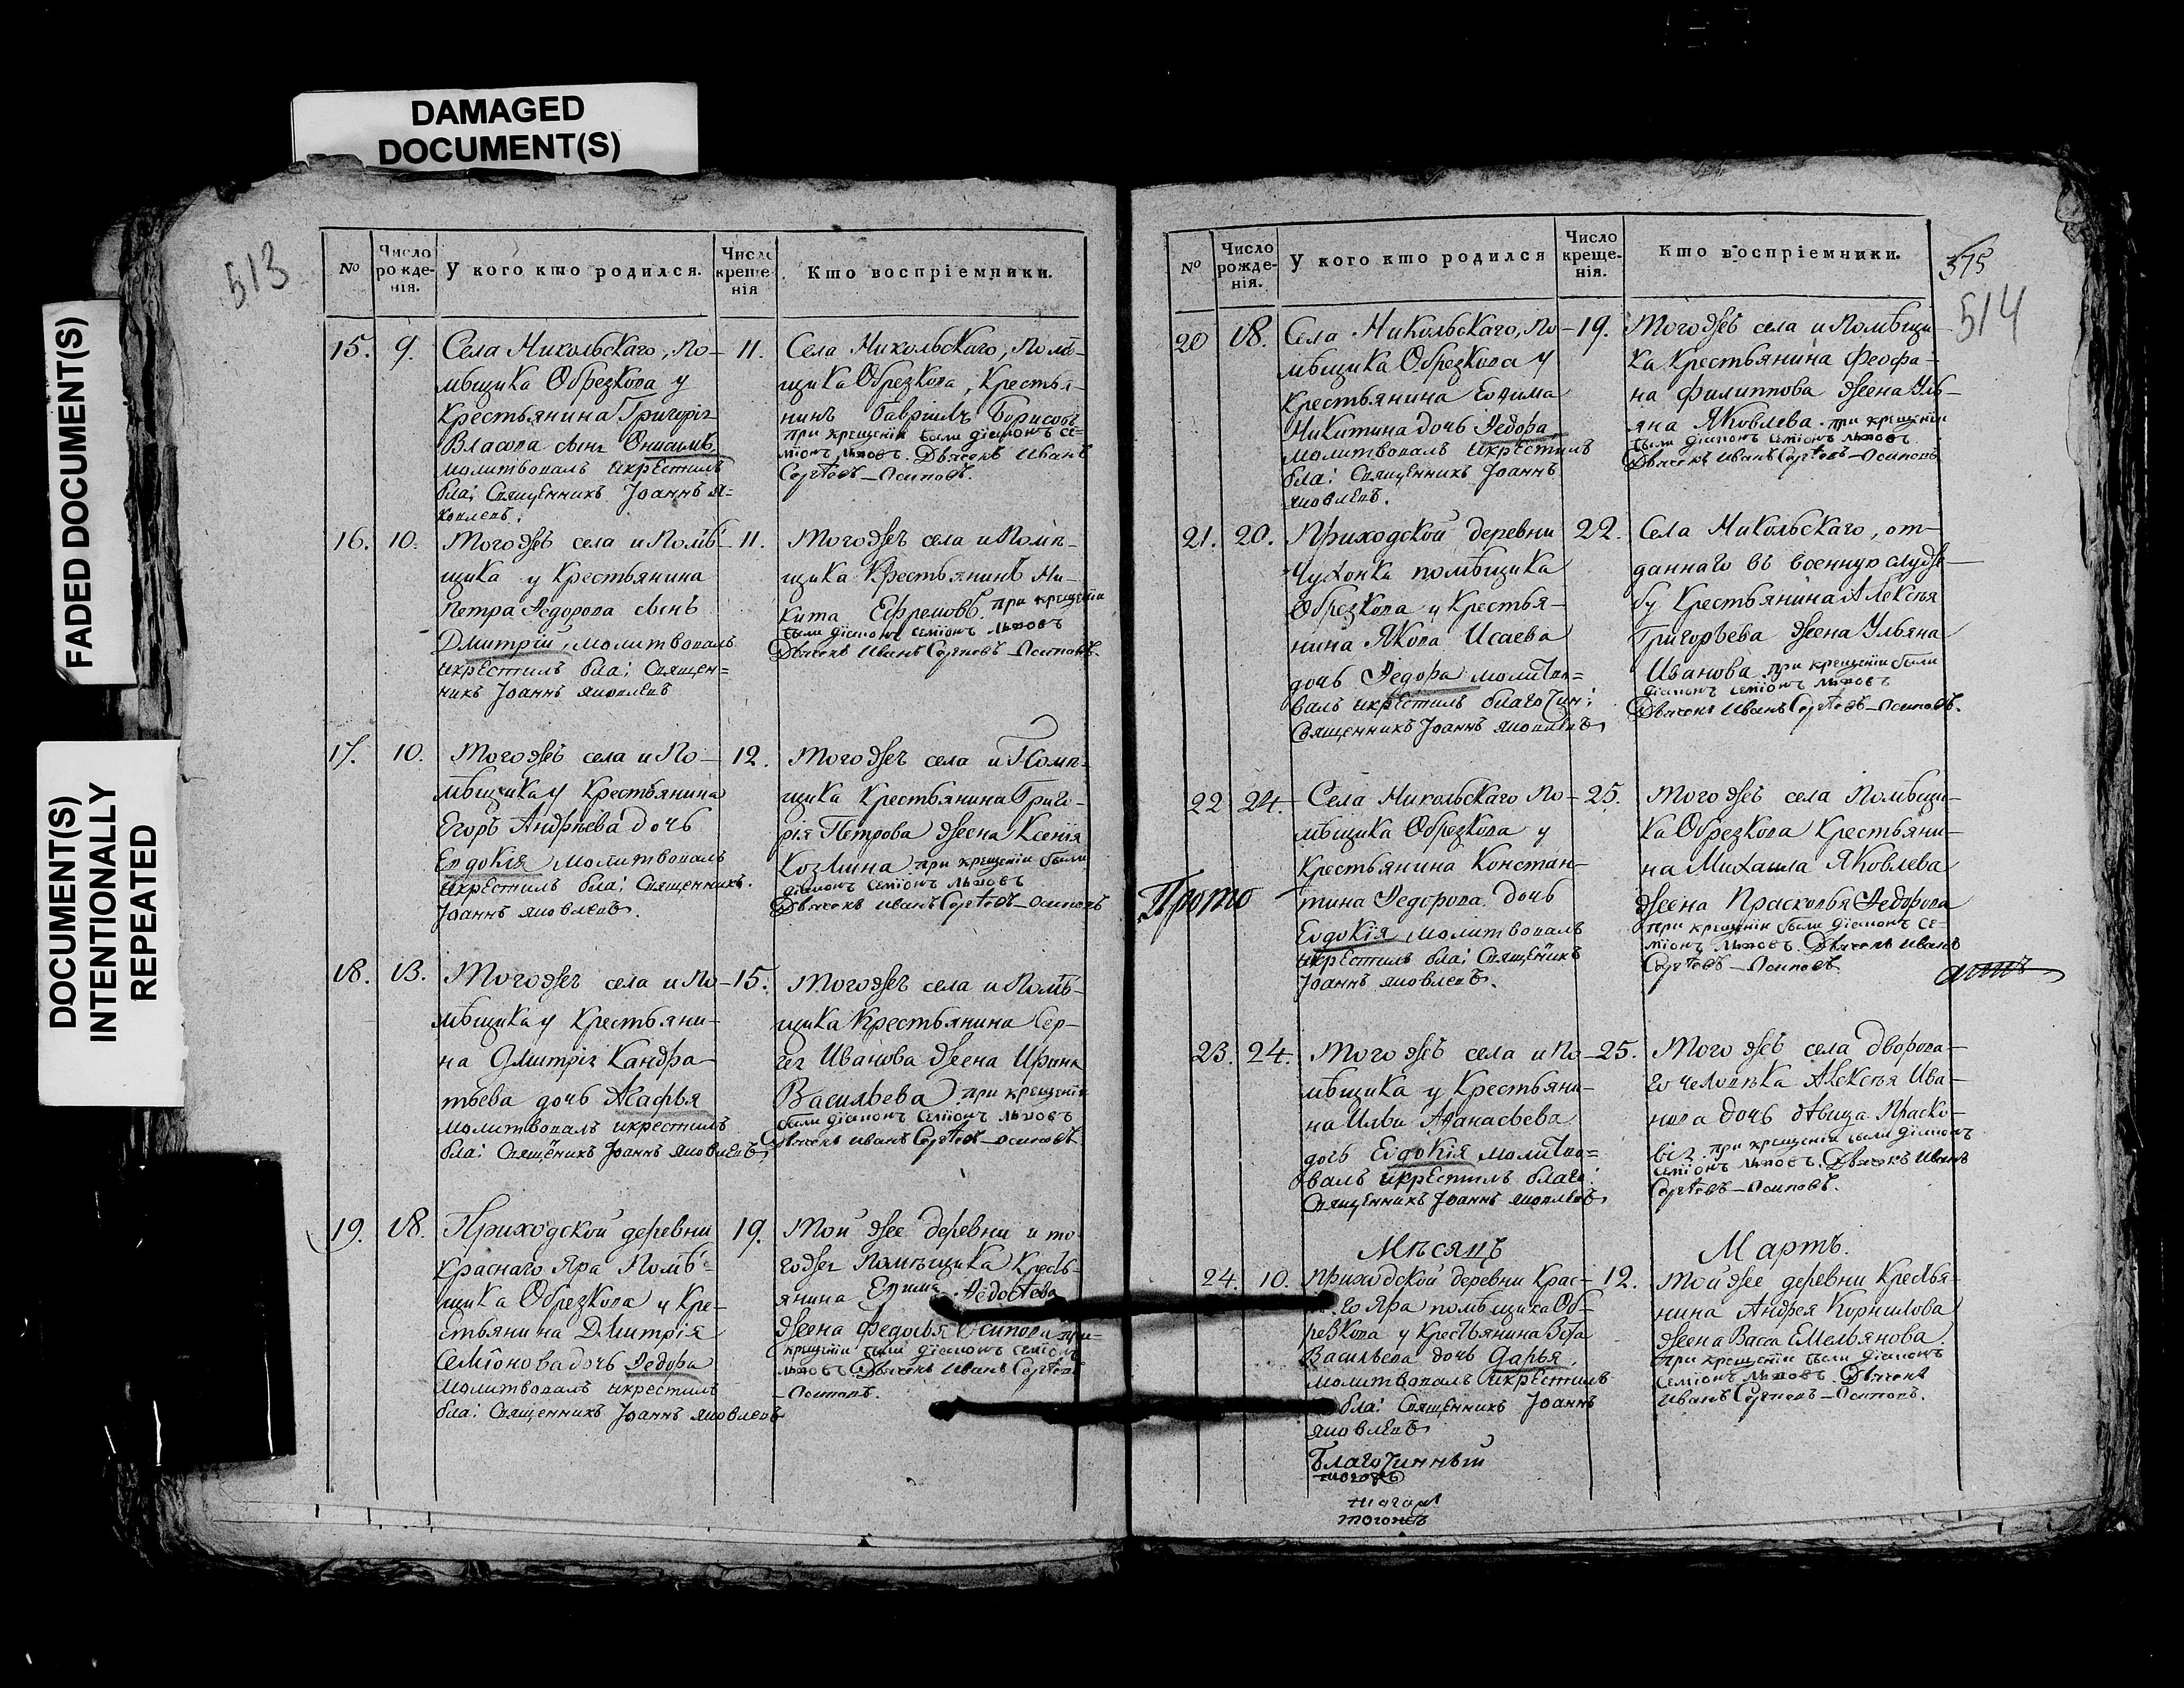 DAMAGED
DOCUMENT(S)
FADED DOCUMENT(S)
DOCUMENT(S)
INTENTIONALLY
REPEATED
513
№
Число рожденія.
У кого кто родился.
Число крещенія
Кто воспріемники.
15. 9.
Села Никольскаго, По-
мѣщика Обрезкова у
крестьянина Григорія
Власова сынъ Онисимъ,
молитвовалъ икрестилъ
бла: Священникъ Іоаннъ Я-
ковлевъ.
11.
Села Никольскаго, Помѣ-
щика Обрезкова, Крестья-
нинъ Гавріилъ Борисовъ
при крещеніи были діаконъ Се-
міонъ Львовъ. Дьячекъ Иванъ
Сергѣевъ - Осиповъ.
16. 10.
Того жъ села и Помѣ-
щика у Крестьянина
Петра Федорова сынъ
Дмитрій, молитвовалъ
икрестилъ бла: Священ=
никъ Іоаннъ Яковлевъ
11.
Того жъ села и Помѣ-
щика Крестьянинъ Ни-
кита Ефремовъ. при крещеніи
были діаконъ Семіонъ Львовъ
Дьячекъ Иванъ Сергѣевъ - Осиповъ.
17. 10.
Того жъ села и По-
мѣщика у Крестьянина
Егоръ Андрѣева дочь
Евдокія молитвовалъ
икрестилъ бла: Священникъ.
Іоаннъ Яковлевъ.
12.
Того жъ села и Помѣ-
щика Крестьянина Григо-
рія Петрова жена Ксенія
Козмина при крещеніи были
діаконъ Семіонъ Львовъ
Дьячекъ Иванъ Сергѣевъ - Осиповъ
18. 13.
Того жъ села и По-
мѣщика у Крестьяни-
на Дмитрія Кандра-
тьева дочь Агафья
молитвовалъ икрестилъ
бла: Священикъ Іоаннъ Яковлевъ
15.
Того жъ села и Помѣ-
щика Крестьянина Сер-
гея Иванова жена Ирина
Васильева при крещеніи
были діаконъ Семіонъ Львовъ
Дьячекъ Иванъ Сергѣевъ - Осиповъ.
19. 18.
Приходской деревни
Краснаго Яра Помѣ-
щика Обрезкова у Кре-
стьянина Дмитрія
Семіонова дочь Федора
молитвовалъ икрестилъ
бла: Священникъ Іоаннъ Яковлевъ
19.
Той же деревни и то-
гожъ Помѣщика Кресть-
янина Ефима
жена Федосья Осипова при-
крещеніи были діаконъ Семіонъ
Львовъ Дьячекъ Иванъ Сергѣевъ
- Осиповъ.
№
Число рожденія.
У кого кто родился
Число крещенія.
Кто воспріемники.
514
20 18.
Села Никольскаго, По-
мѣщика Обрезкова у
крестьянина Ефима
Никитина дочь Федора
молитвовалъ икрестилъ
бла: Священникъ Іоаннъ
Яковлевъ.
19.
Того жъ села и Помѣщи-
ка Крестьянина Феофа-
на Филиппова жена Уль-
яна Яковлева. при крещеніи
были діаконъ Семіонъ Львовъ
Дьячекъ Иванъ Сергѣевъ - Осиповъ
21. 20.
Приходской деревни
Чухонка помѣщика
Обрезкова у Крестья-
нина Якова Исаева
дочь Федора молитво=
валъ икрестилъ благочин:
Священникъ Іоаннъ Яковлевъ
22.
Села Никольскаго, от-
даннаго въ военную служ-
бу Крестьянина Алексѣя
Григорьева жена Ульяна
Иванова. при крещеніи были
діаконъ Семіонъ Львовъ
Дьячекъ Иванъ Сергѣевъ - Осиповъ.
22 24
Села Никольскаго По-
мѣщика Обрезкова у
Крестьянина Констан-
тина Федорова дочь
Евдокія молитвовалъ
икрестилъ бла: Священикъ
Іоаннъ Яковлевъ.
25.
Того жъ села Помѣщи-
ка Обрезкова Крестьяни-
на Михаила Яковлева
жена Прасковья Федорова
при крещеніи были діаконъ Се-
міонъ Львовъ. Дьячекъ Иванъ
Сергѣевъ - Осиповъ.
Прото
23. 24.
Того жъ села и По-
мѣщика у Крестьяни-
на Ильи Афанасьева
дочь Евдокія молитво=
валъ икрестилъ благо:
Священникъ Іоаннъ Яковлевъ
25.
Того жъ села дворова-
го человѣка Алексѣя Ива-
нова дочь дѣвица Праско-
вія. при крещеніи были діаконъ
Семіонъ Львовъ. Дьячекъ Иванъ
Сергѣевъ - Осиповъ.
Мѣсяцъ
Мартъ.
24. 10.
Приходской деревни Крас-
го Яра помѣщика Об-
резкова у Крестьянина
Васильева дочь Дарья.
молитвовалъ икрестилъ
бла: Священникъ Іоаннъ
Яковлевъ
Благочинный
12.
Той же деревни Крестья-
нина Андрея Корнилова
жена Васса Емельянова.
при крещеніи были діаконъ
Семіонъ Львовъ. Дьячекъ
Иванъ Сергѣевъ - Осиповъ.